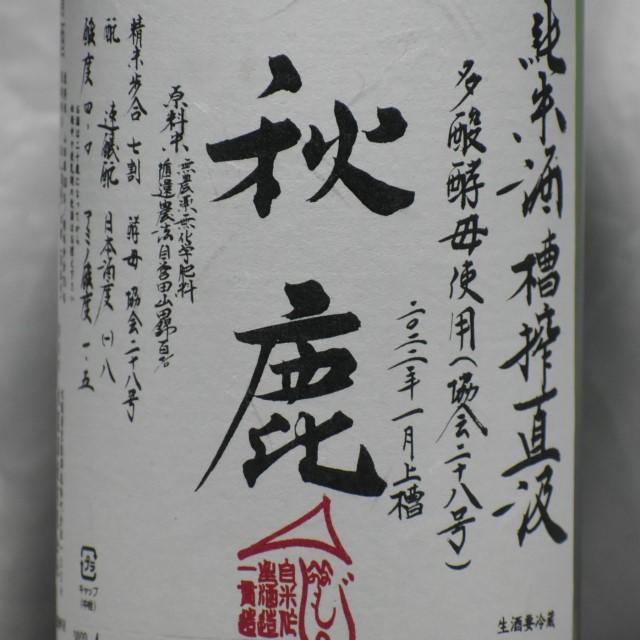 純米酒槽搾直汲
多酸酵母使用(協会二十八号)
二〇二二年一月上槽
秋鹿
原料米 無農薬無化学肥料
循環農法自営田山田錦
精米歩合 七割 酵母 協会二十八号
酛 速醸酛 日本酒度 八
酸度 四・四 アミノ酸度 一・五
自米作
一貫造
生酒要冷蔵
キャップ
プラ